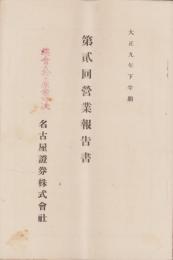 大正九年下半期
第貳回營業報告書
名古屋證券株式會社